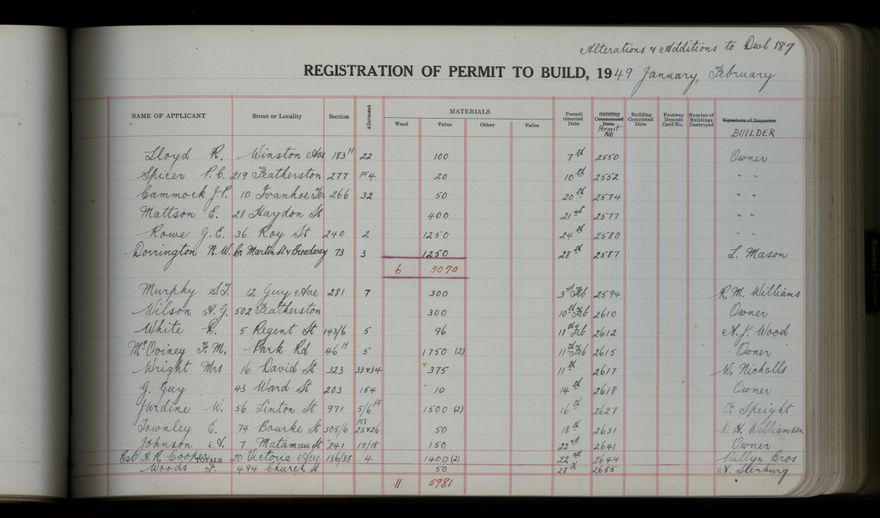 Alterations & Additions to Dwl 187
REGISTRATION OF PERMIT TO BUILD, 1949 January, February
NAME OF APPLICANT Street or Locality Section Allotment MATERIALS Wood Value Other Value Permit Granted Date Building Commenced Date Permit No Building Completed Date Footway Deposit Card No. Number of Buildings Destroyed Signature of Inspector BUILDER
Lloyd R. Winston Ave 183H 22 100 7th 2550 Owner
Spicer P.C. 219 Featherston 277 Pt4 20 10th 2552 " "
Cammock J.P. 10 Ivanhoe Ter 266 32 50 20th 2574 " "
Mattson E. 28 Haydon St 400 21st 2577 " "
Rowe G.E. 36 Roy St 240 2 1250 24th 2580 " "
Dorrington N.W. Cr Martin St & Broadway 73 3 1250 28th 2587 L. Mason
6 3070
Murphy 12 Guy Ave 281 7 300 3rd Feb 2594 R.M. Williams
Wilson A.G. 502 Featherston 300 10th Feb 2610 Owner
White R. 5 Regent St 143/6 5 96 11th Feb 2612 A.J. Wood
F.M. Park Rd 46H 5 1750 (2) 11th Feb 2615 Owner
Wright Mrs 16 David St 323 33&34 375 11th 2617 W. Nicholls
G. Guy 43 Ward St 203 154 10 14th 2618 Owner
Jardine W. 56 Linton St 971 5/6 Pt 1500 (2) 16th 2627 Speight
Townley E. 74 Bourke St 305/6 Pt3 25&26 50 18th 2631 Williamson
Johnson A. 7 Matamau St 241 17/18 150 22nd 2641 Owner
Est H.R. Cooper TOTALS 20 Victoria Ave 136/38 4 1400 (2) 22nd 2644 Bros
Woods F. 494 Church St 50 28th 2655 A. Stenburg
11 5981